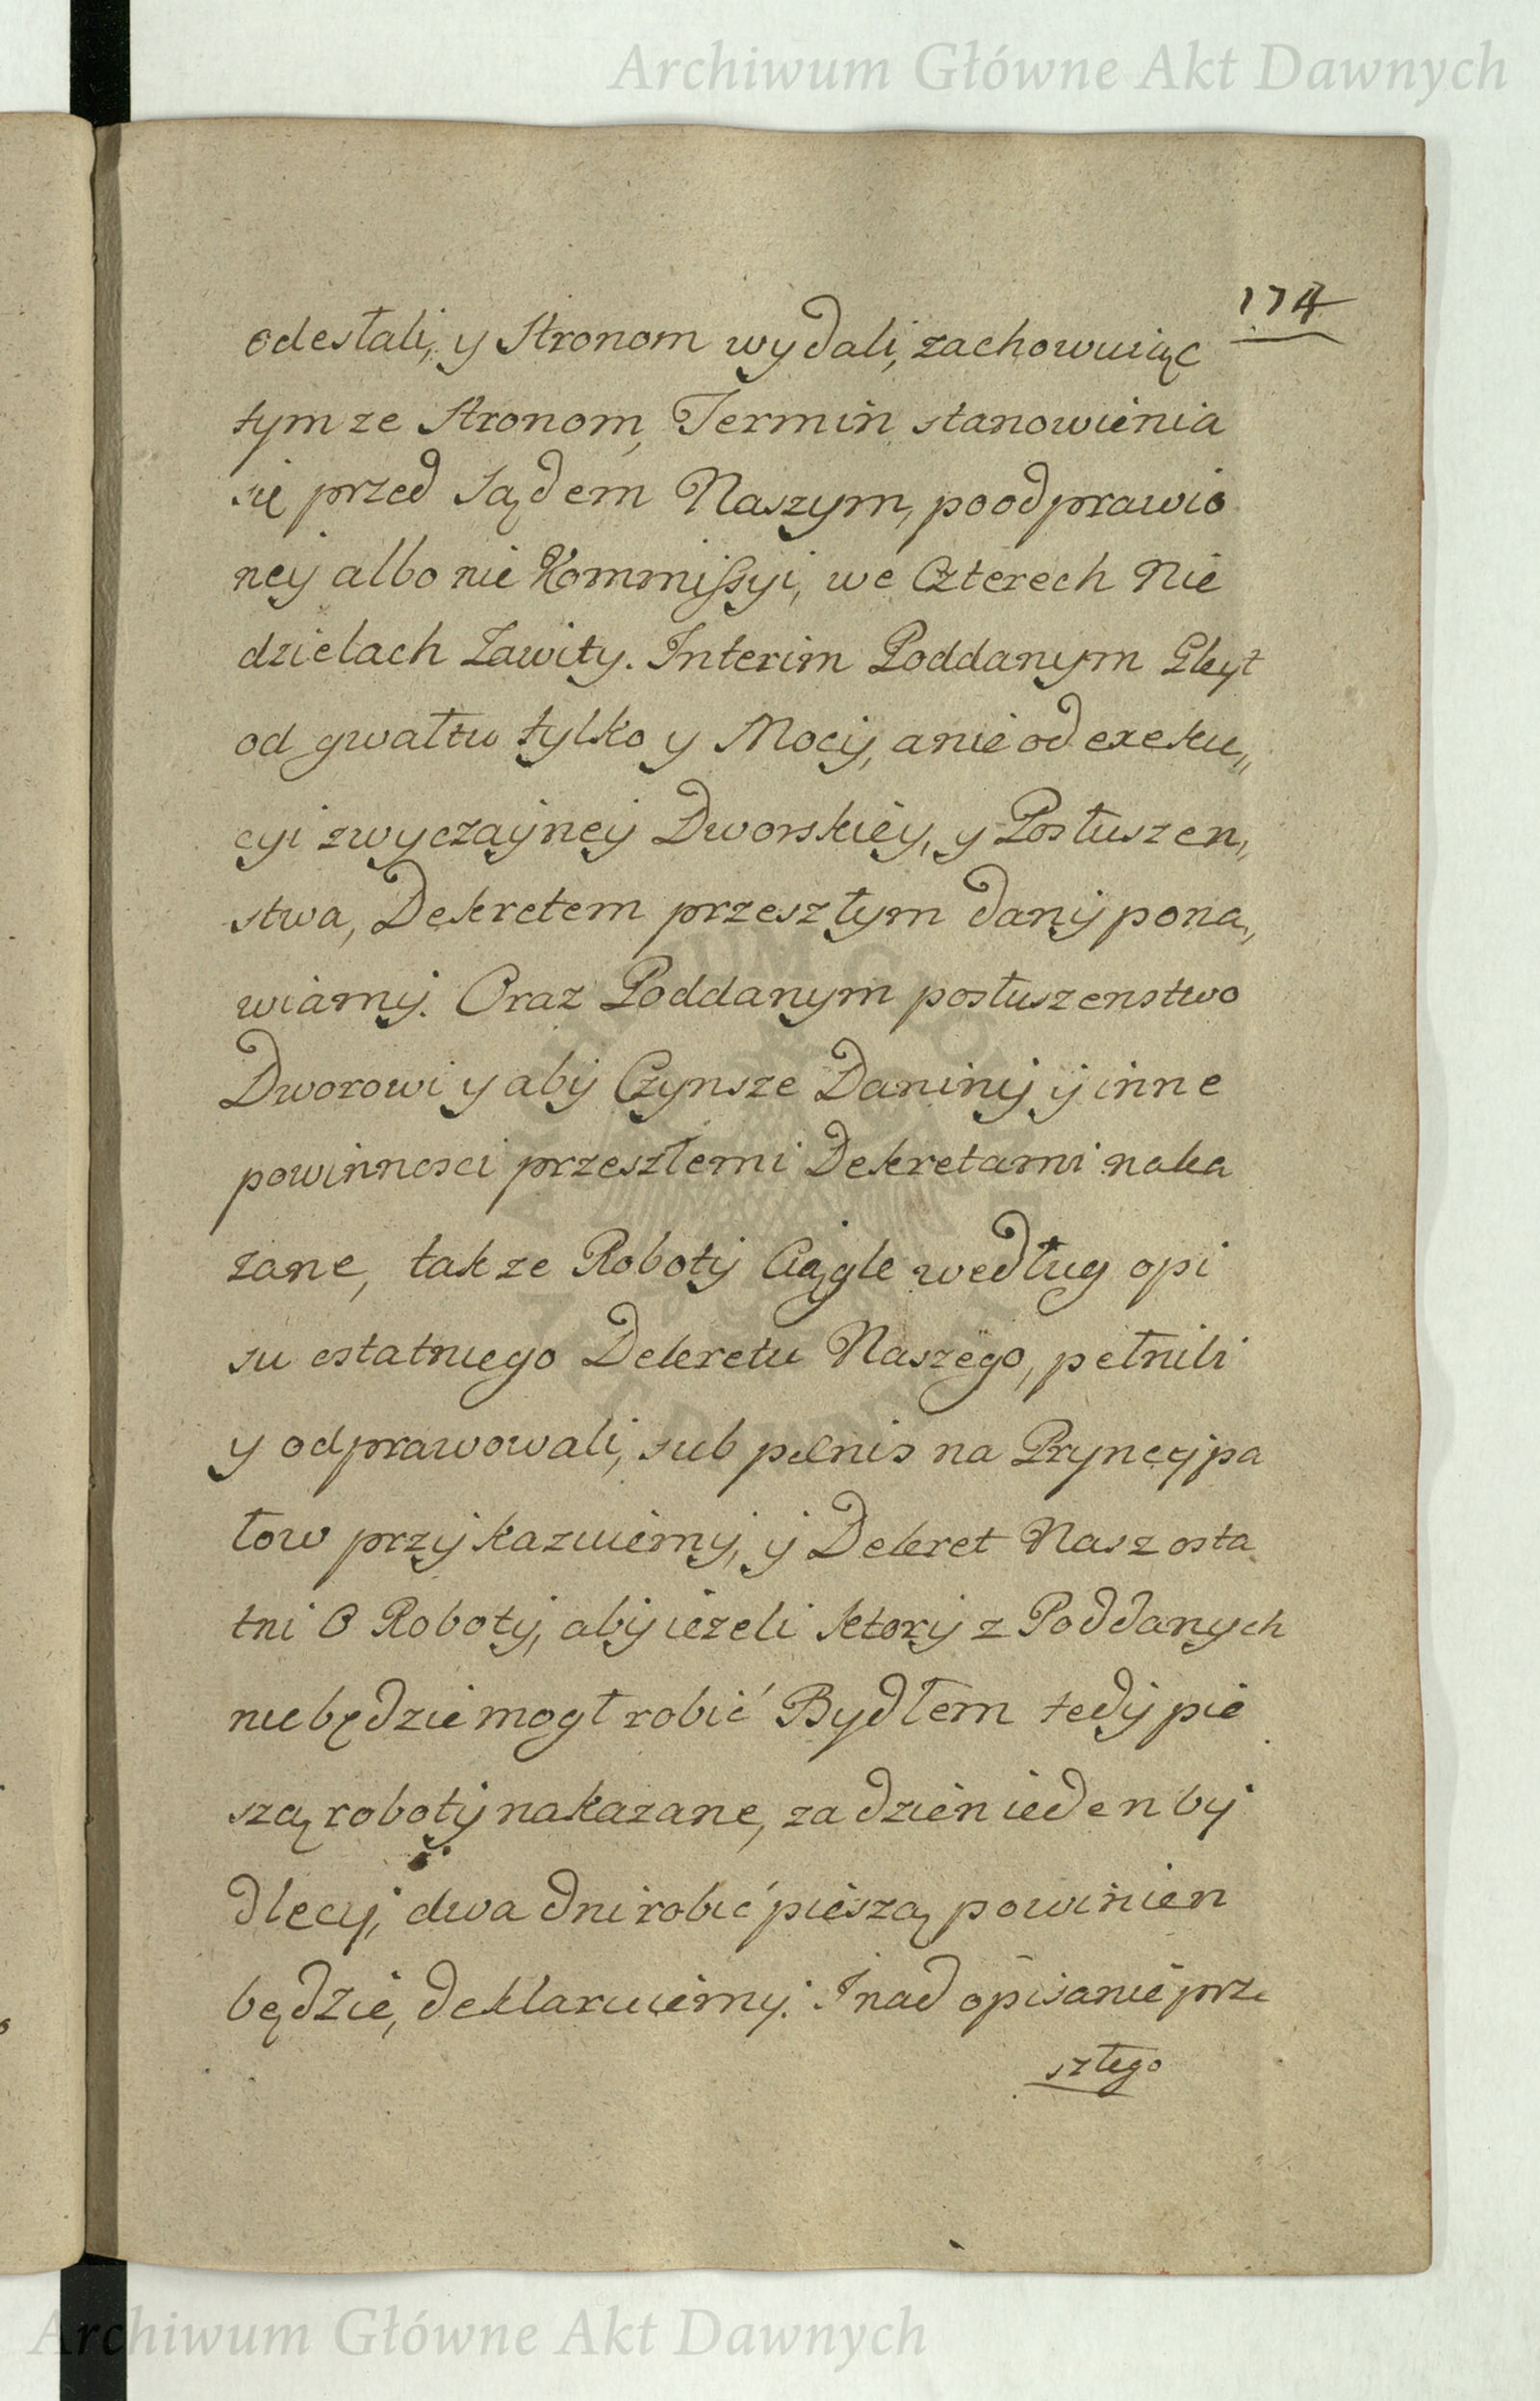 Archiwum Główne Akt Dawnych
174
odesłali, y Stronom wydali, zachowuiąc
tymze Stronom, Termin stanowienia
się przed Sądem Naszym, poodprawio
ney albo nie Kommissyi, we Czterech Nie
dzielach Zawity. Interim Poddanym Gleyt
od gwałtu tylko y Mocy, a nie od exeku„
cyi zwyczayney Dworskiey, y Posłuszen„
stwa, Dekretem przeszłym dany pona„
wiamy. Oraz Poddanym posłuszenstwo
Dworowi y aby Czynsze Daniny y inne
powinnosci przeszłemi Dekretami naka
zane, takze Roboty Ciągle według opi
su ostatniego Dekretu Naszego, pełnili
y odprawowali, sub pœnis na Pryncypa
łow przykazuiemy, y Dekret Nasz osta
tni O Roboty, aby iezeli ktory z Poddanych
nie będzie mogł robić Bydłem tedy pie
szą roboty nakazane, za dzien ieden by
dlecy, dwa dni robić pieszą powinien
będzie, deklaruiemy. I nad opisanie prze
szłego
Archiwum Główne Akt Dawnych